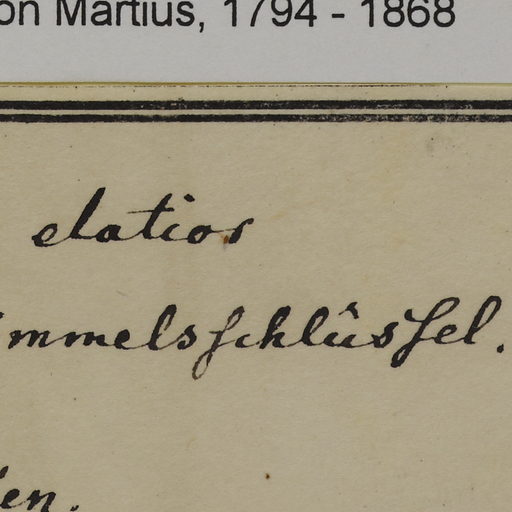 on Martius, 1794 - 1868
elatior
immelsschlüssel.
en.